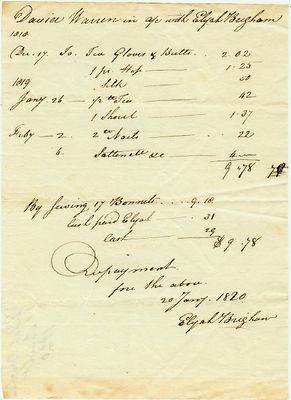 David Warren in a/c with Elijah Brigham
1818
Dec. 17. To. Tea Gloves & Butts . . 2.02
1 pr. Hose — . . 1-25
1819 Silk — . . 50
Jany. 26 — ½ lb Tea — 42
1 Shovel — 1-37
Feby — 2. 2 lb Nails — . . 22
6. Sattenett &c — 4.—
9.-78
By Sewing 17 Bonnets . . . . 9.18
Cash paid Elijah . 31
Cash — . . 29
$9.-78
Repayment
for the above.
20 Jany. 1820
Elijah Brigham